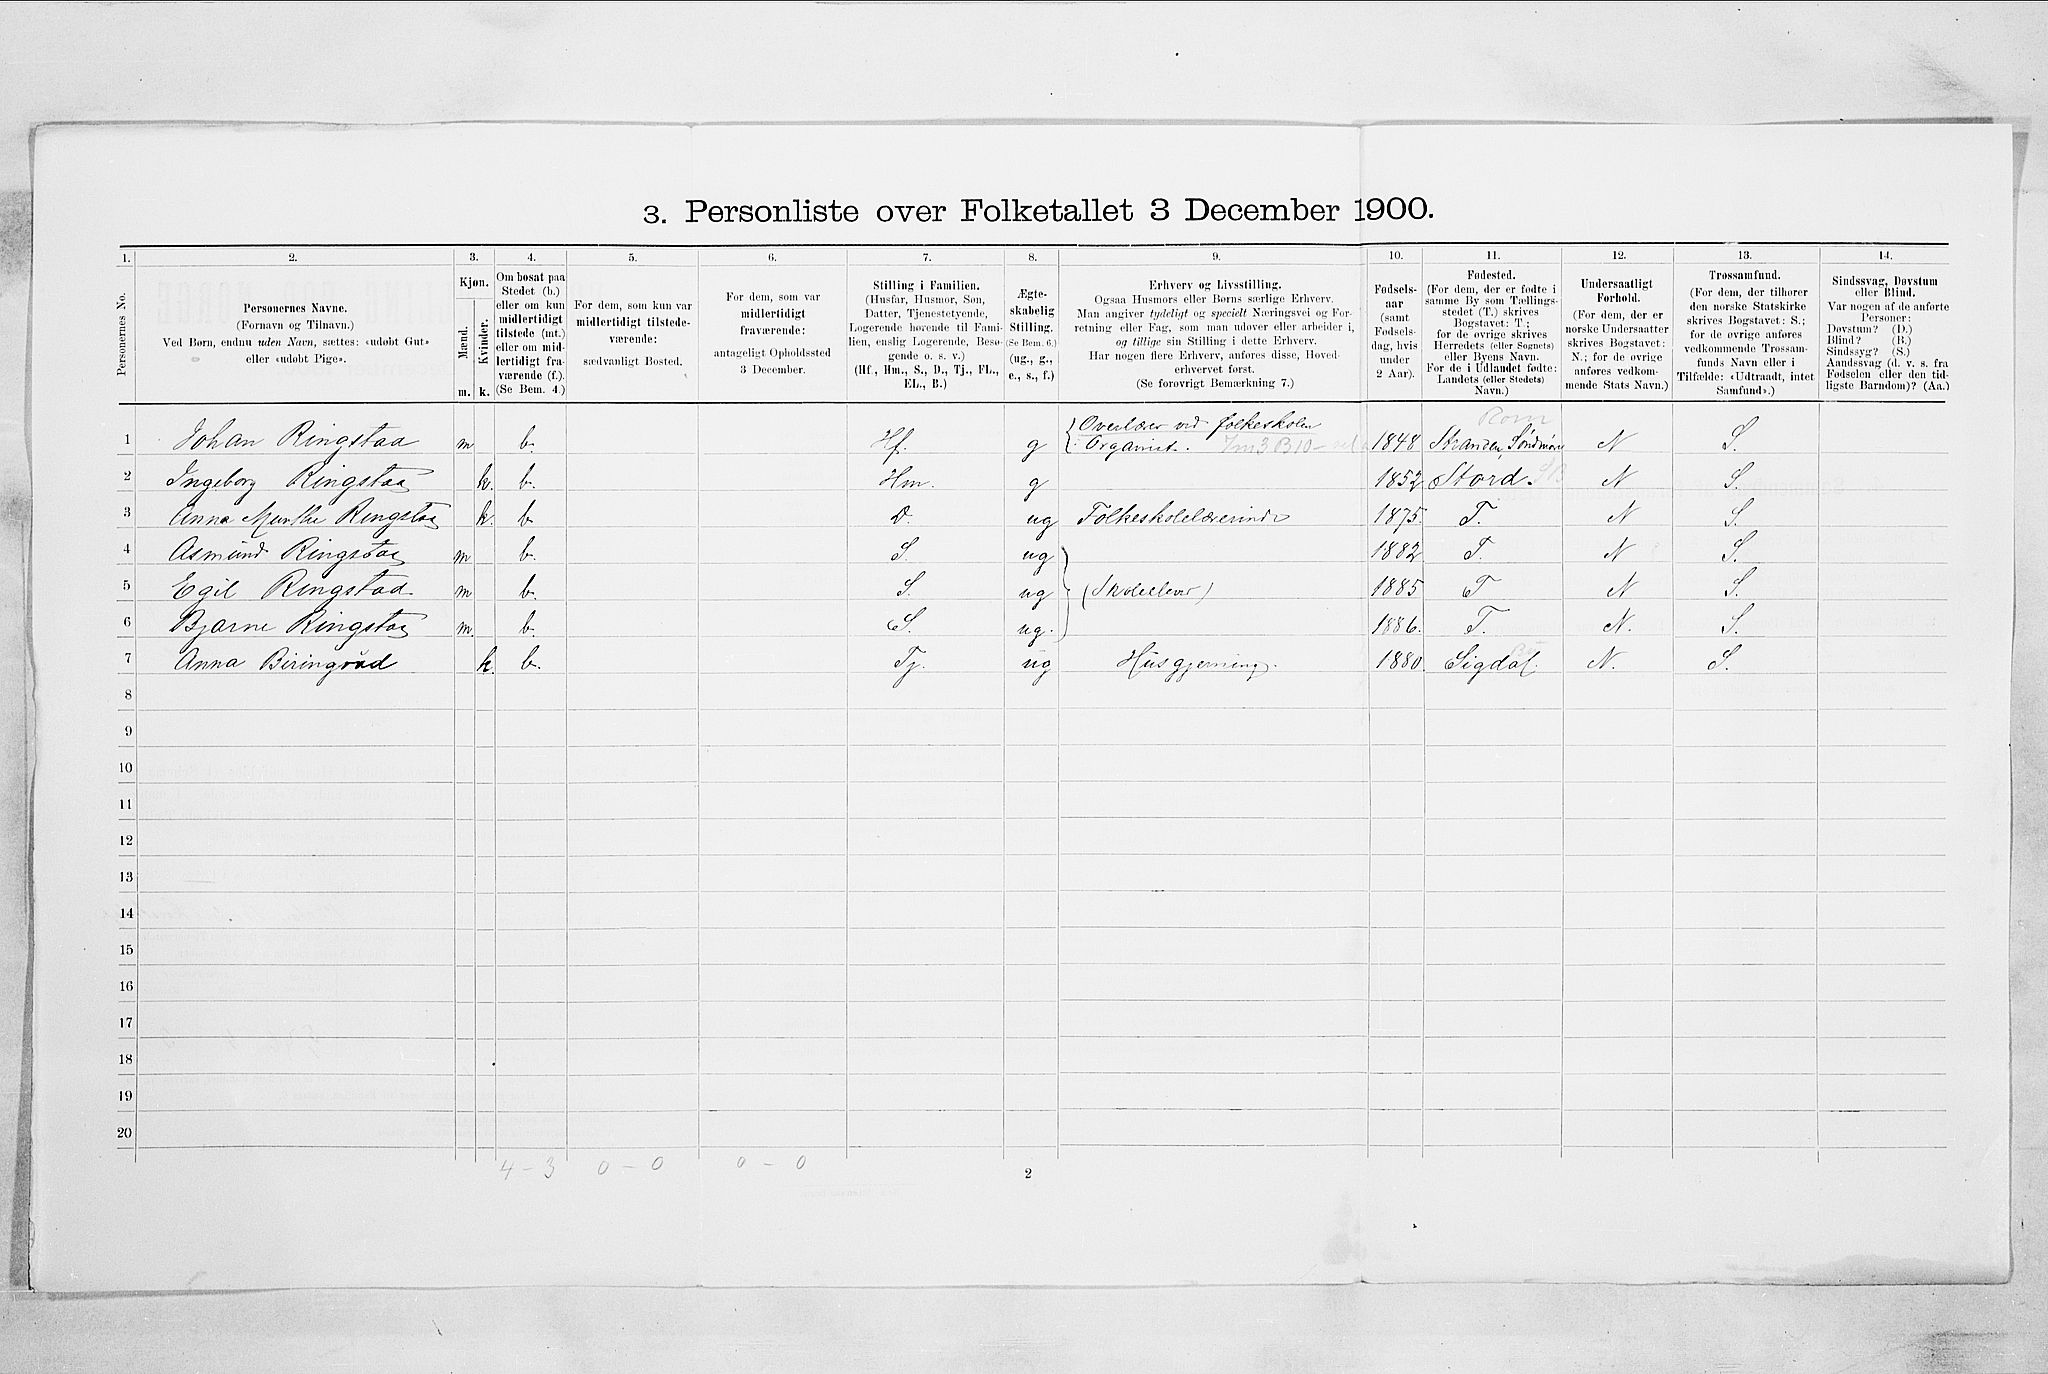 3. Personliste over Folketallet 3 December 1900.
1. 2. 3. 4. 5. 6. 7. 8. 9. 10. 11. 12. 13. 14.
Personernes No.
Personernes Navne.
(Fornavn og Tilnavn.)
Ved Børn, endnu uden Navn, sættes: «udøbt Gut»
eller «udøbt Pige».
Kjøn.
Mænd.
Kvinder.
m. k.
Om bosat paa
Stedet (b.)
eller om kun
midlertidigt
tilstede (mt.)
eller om mid-
lertidigt fra-
værende (f.)
(Se Bem. 4.)
For dem, som kun var
midlertidigt tilstede-
værende:
sædvanligt Bosted.
For dem, som var
midlertidigt
fraværende:
antageligt Opholdssted
3 December.
Stilling i Familien.
(Husfar, Husmor, Søn,
Datter, Tjenestetyende,
Logerende hørende til Fami-
lien, enslig Logerende, Besø-
gende o. s. v.)
(Hf., Hm., S., D., Tj., FL.,
EL., B.)
Ægte-
skabelig
Stilling.
(Se Bem. 6.)
(ug., g.,
e., s., f.)
Erhverv og Livsstilling.
Ogsaa Husmors eller Børns særlige Erhverv.
Man angiver tydeligt og specielt Næringsvei og For-
retning eller Fag, som man udøver eller arbeider i,
og tillige sin Stilling i dette Erhverv.
Har nogen flere Erhverv, anføres disse, Hoved-
erhvervet først.
(Se forøvrigt Bemærkning 7.)
Fødsels-
aar
(samt
Fødsels-
dag, hvis
under
2 Aar).
Fødested.
(For dem, der er fødte i
samme By som Tællings-
stedet (T.) skrives
Bogstavet: T.;
for de øvrige skrives
Herredets (eller Sognets)
eller Byens Navn.
For de i Udlandet fødte:
Landets (eller Stedets)
Navn.)
Undersaatligt
Forhold.
(For dem, der er
norske Undersaatter
skrives Bogstavet:
N.; for de øvrige
anføres vedkom-
mende Stats Navn.)
Trossamfund.
(For dem, der tilhører
den norske Statskirke
skrives Bogstavet: S.;
for de øvrige anføres
vedkommende Trossam-
funds Navn eller i
Tilfælde: «Udtraadt, intet
Samfund».)
Sindssvag, Døvstum
eller Blind.
Var nogen af de anførte
Personer:
Døvstum? (D.)
Blind? (B.)
Sindssyg? (S.)
Aandssvag (d. v. s. fra
Fødselen eller den tid-
ligste Barndom)? (Aa.)
Overlærer ved folkeskolen
1 Johan Ringstad m b. Hf. g Organist. 1848 Stranden Søndmøre N S.
2 Ingeborg Ringstad k. b. Hm. g 1852 Stord. N S.
3 Anna Ringstad k. b. D. ug Folkeskolelærerinde 1875. T. N S.
4 Asmund Ringstad m b. S. ug 1882 T. N S.
5 Egil Ringstad m b. S. ug (Skoleelever) 1885 T N S.
6 Bjarne Ringstad m. b. S. ug. 1886. T. N. S.
7 Anna k. b. Tj. ug Husgjerning. 1880. Sigdal. N. S.
8
9
10
11
12
13
14
15
16
17
18
19
20
4 – 3 0 – 0 0 – 0
2